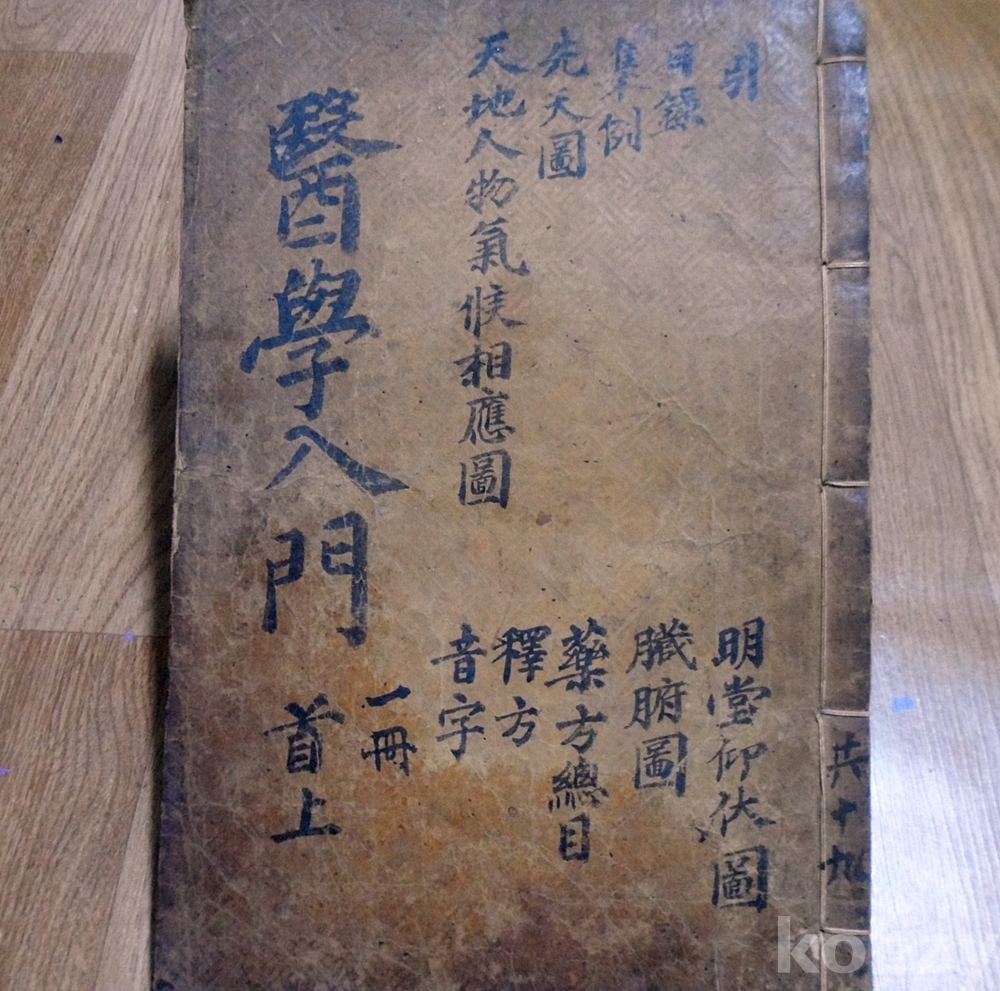 引
目錄
集例
先天圖
天地人物氣候相應圖
明堂仰伏圖
臟腑圖
藥方總目
釋方
音字
一冊
醫學入門
首上
共十九